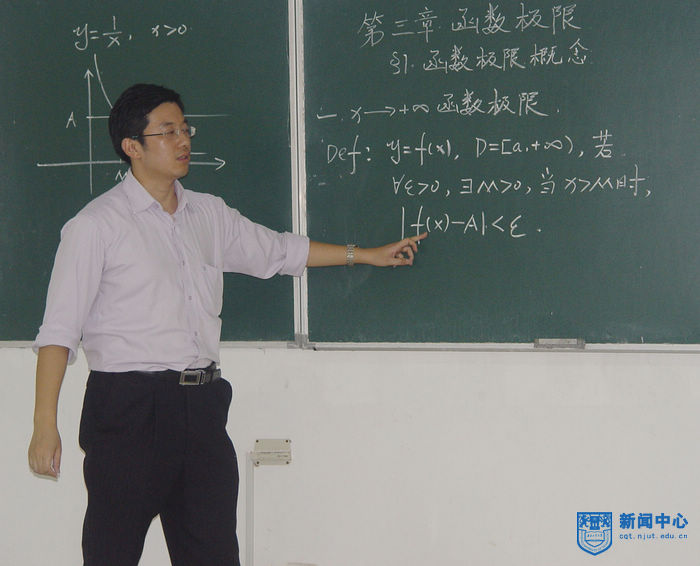 y=1/x, x>0
A
M
第三章 函数极限
§1. 函数极限概念
一. x→+∞函数极限.
Def: y=f(x), D=[a,+∞), 若
∀ε>0, ∃M>0, 当x>M时,
|f(x)-A|<ε.
新闻中心
cqt.njut.edu.cn